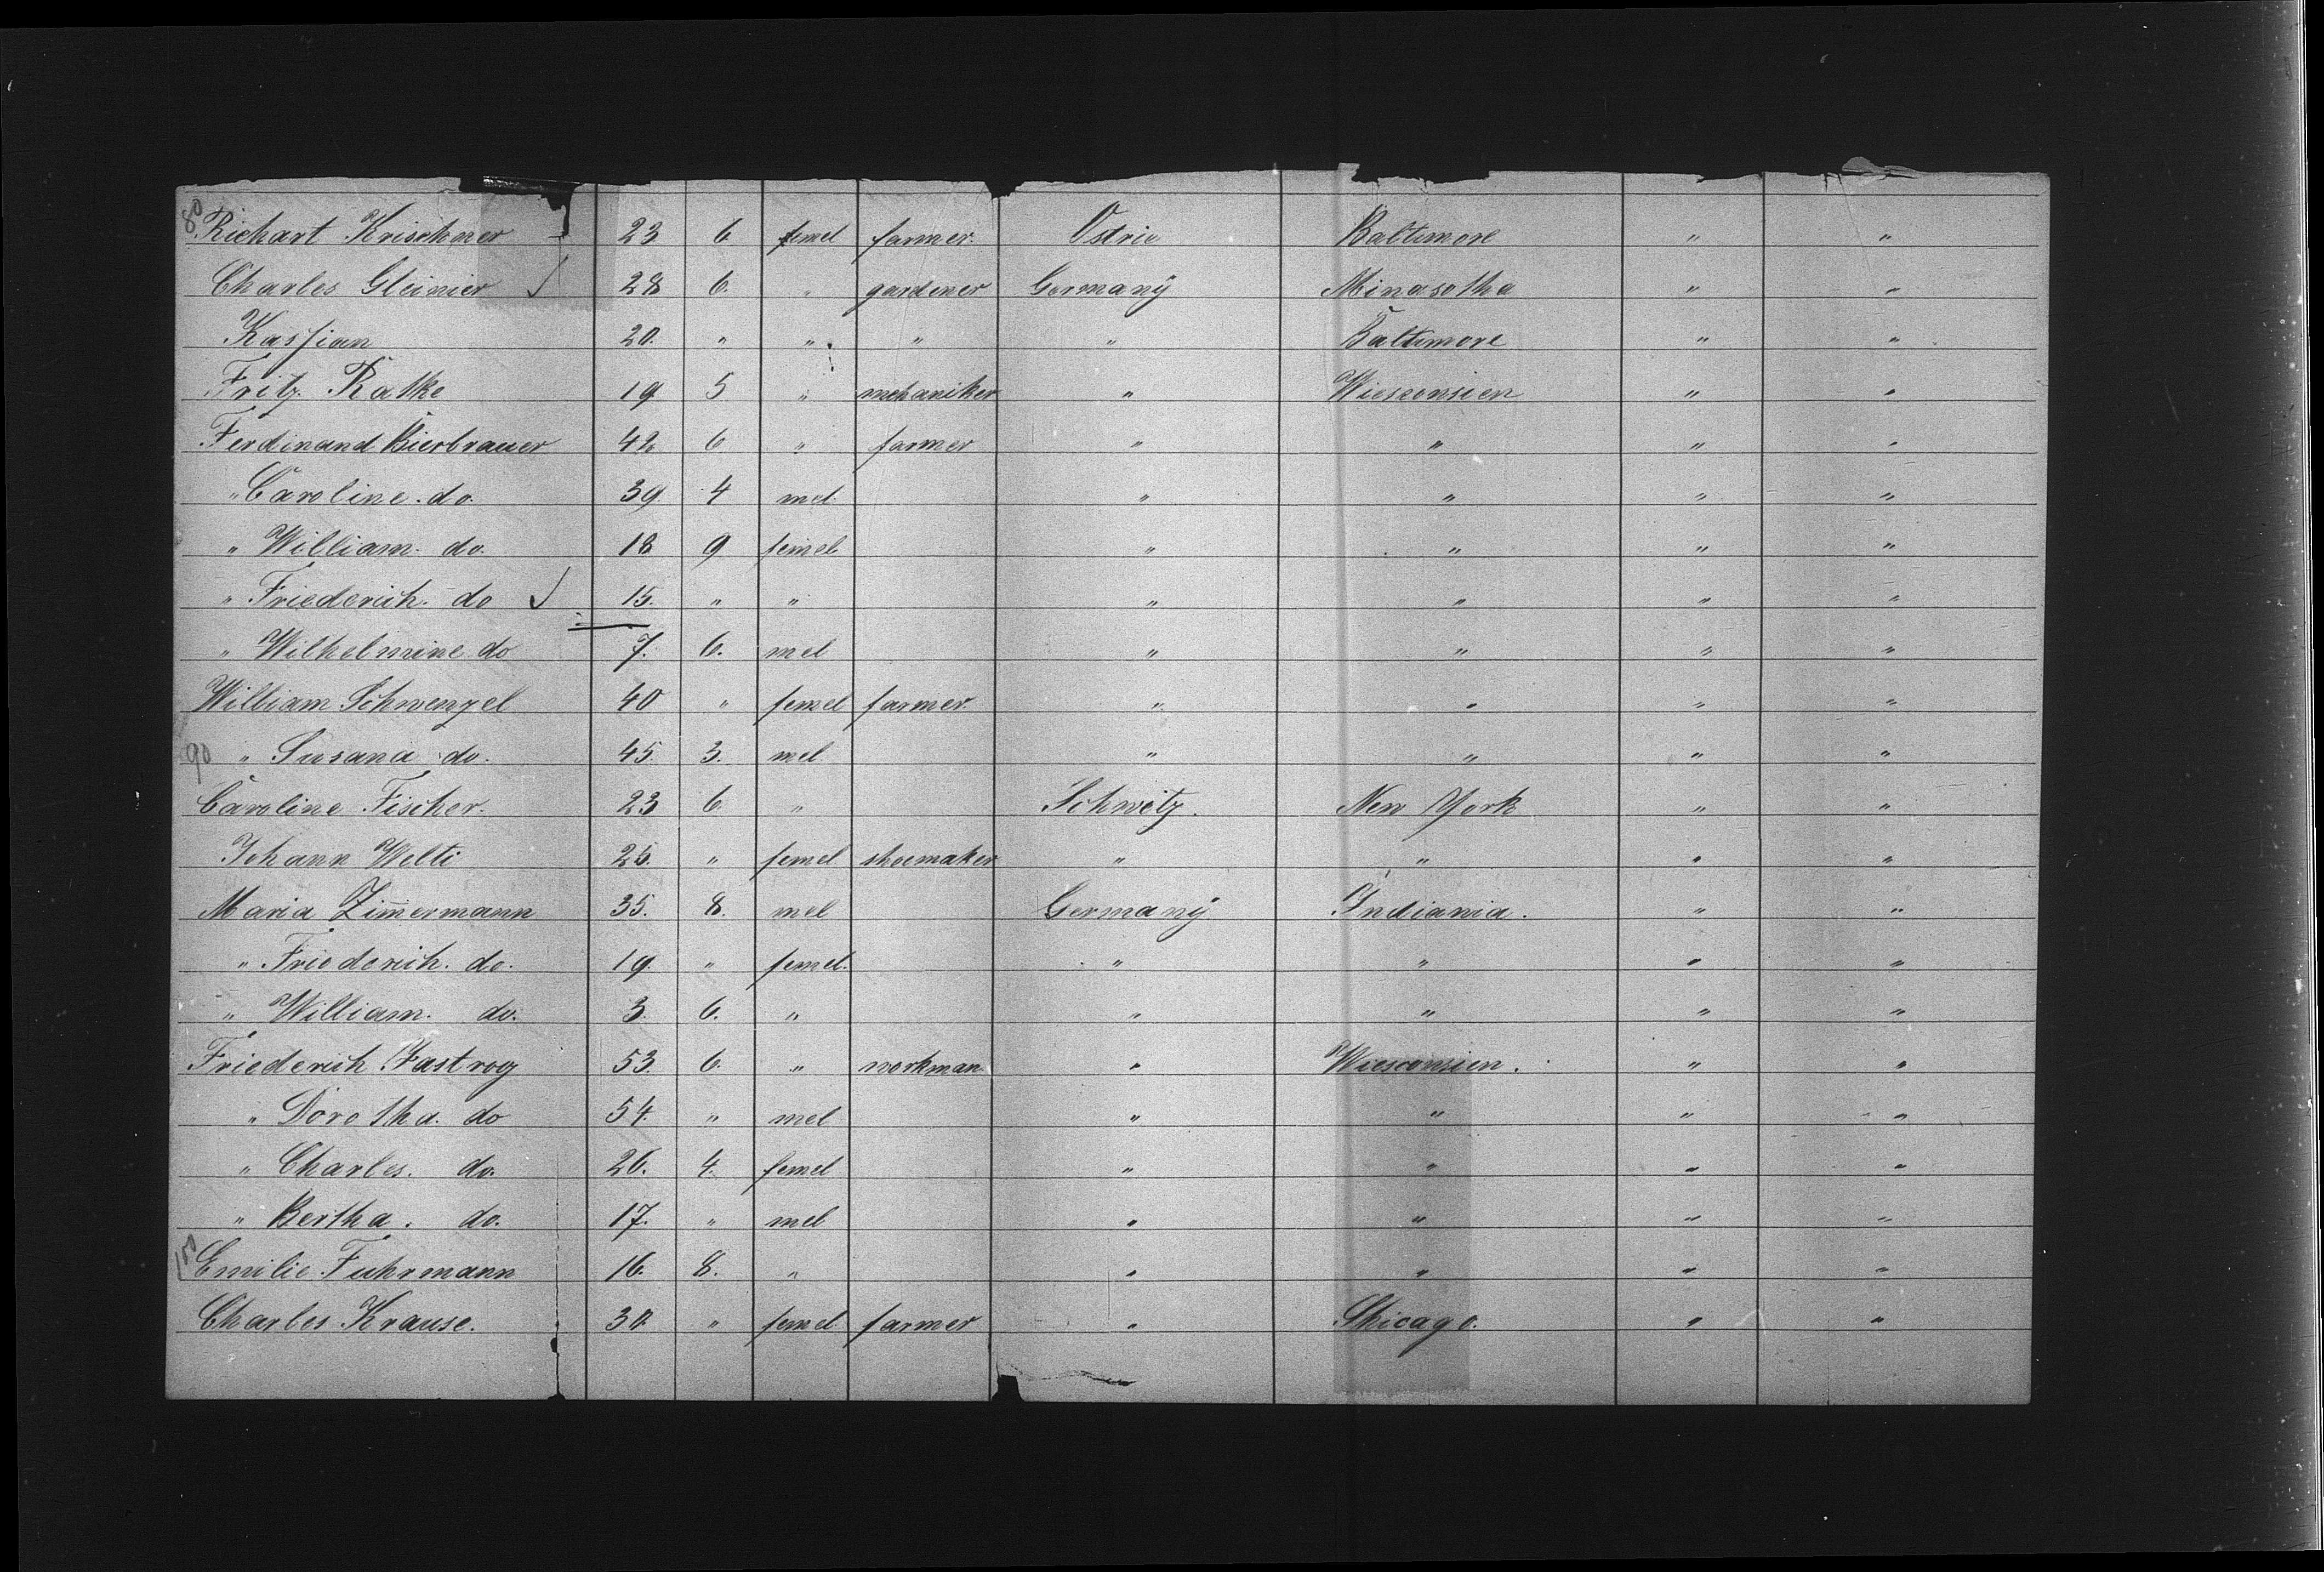 80 Richart Krischner 23 6 femel farmer. Ostrie Baltimore " "
Charles Gleinier ✓ 28 6. " gardener Germany Minasotha " "
Kasſian 20. " " " " Baltimore " "
Fritz Ratke 19 5 " mehaniker " Wiesconsien " "
Ferdinand Bierbrauer 42 6 " farmer " " " "
" Caroline. do. 39. 4 mel. " " " "
" William. do. 18 9 femel " " " "
" Friederich. do ✓ 15. " " " " " "
" Wilhelmine do 7. 6. mel " " " "
William Schwengel 40 " femel farmer. " " " "
90 " Susana do. 45. 3. mel " " " "
Caroline Fischer. 23 6. " Schweitz. New York " "
Johann Welti 25. " femel shoemaker " " " "
Maria Zimmermann 35. 8. mel Germany Indiania. " "
" Friederich. do. 19. " femel. " " " "
" William. do. 3. 6. " " " " "
Friederich Jastrog 53. 6. " workman " Wiesconsien. " "
" Dorotha. do 54. " mel " " " "
" Charles. do. 26. 4. femel " " " "
" Bertha. do. 17. " mel " " " "
100 Emilie Fuhrmann 16. 8. " " " " "
Charles Krause. 30. " femel farmer " Shicago. " "